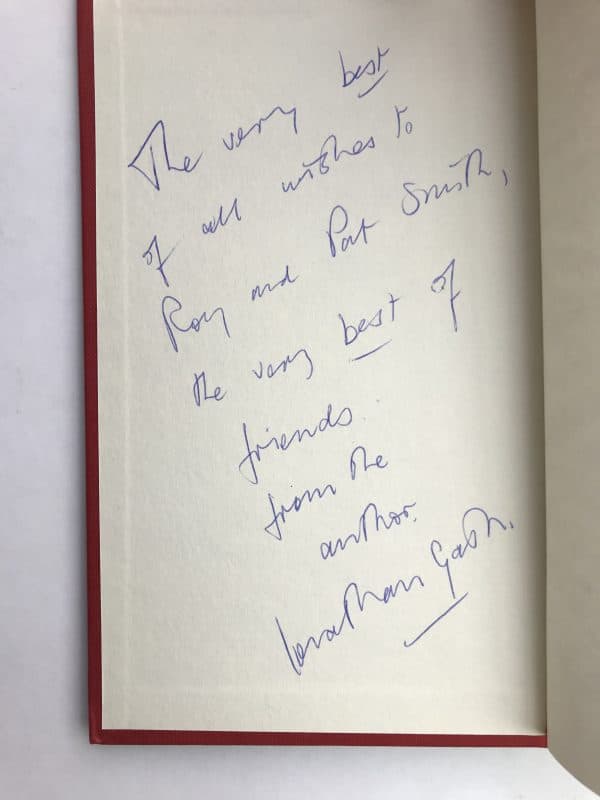 The very best
of all wishes to
Roy and Pat Smith,
the very best of
friends.
from the
author.
Jonathan Gash.